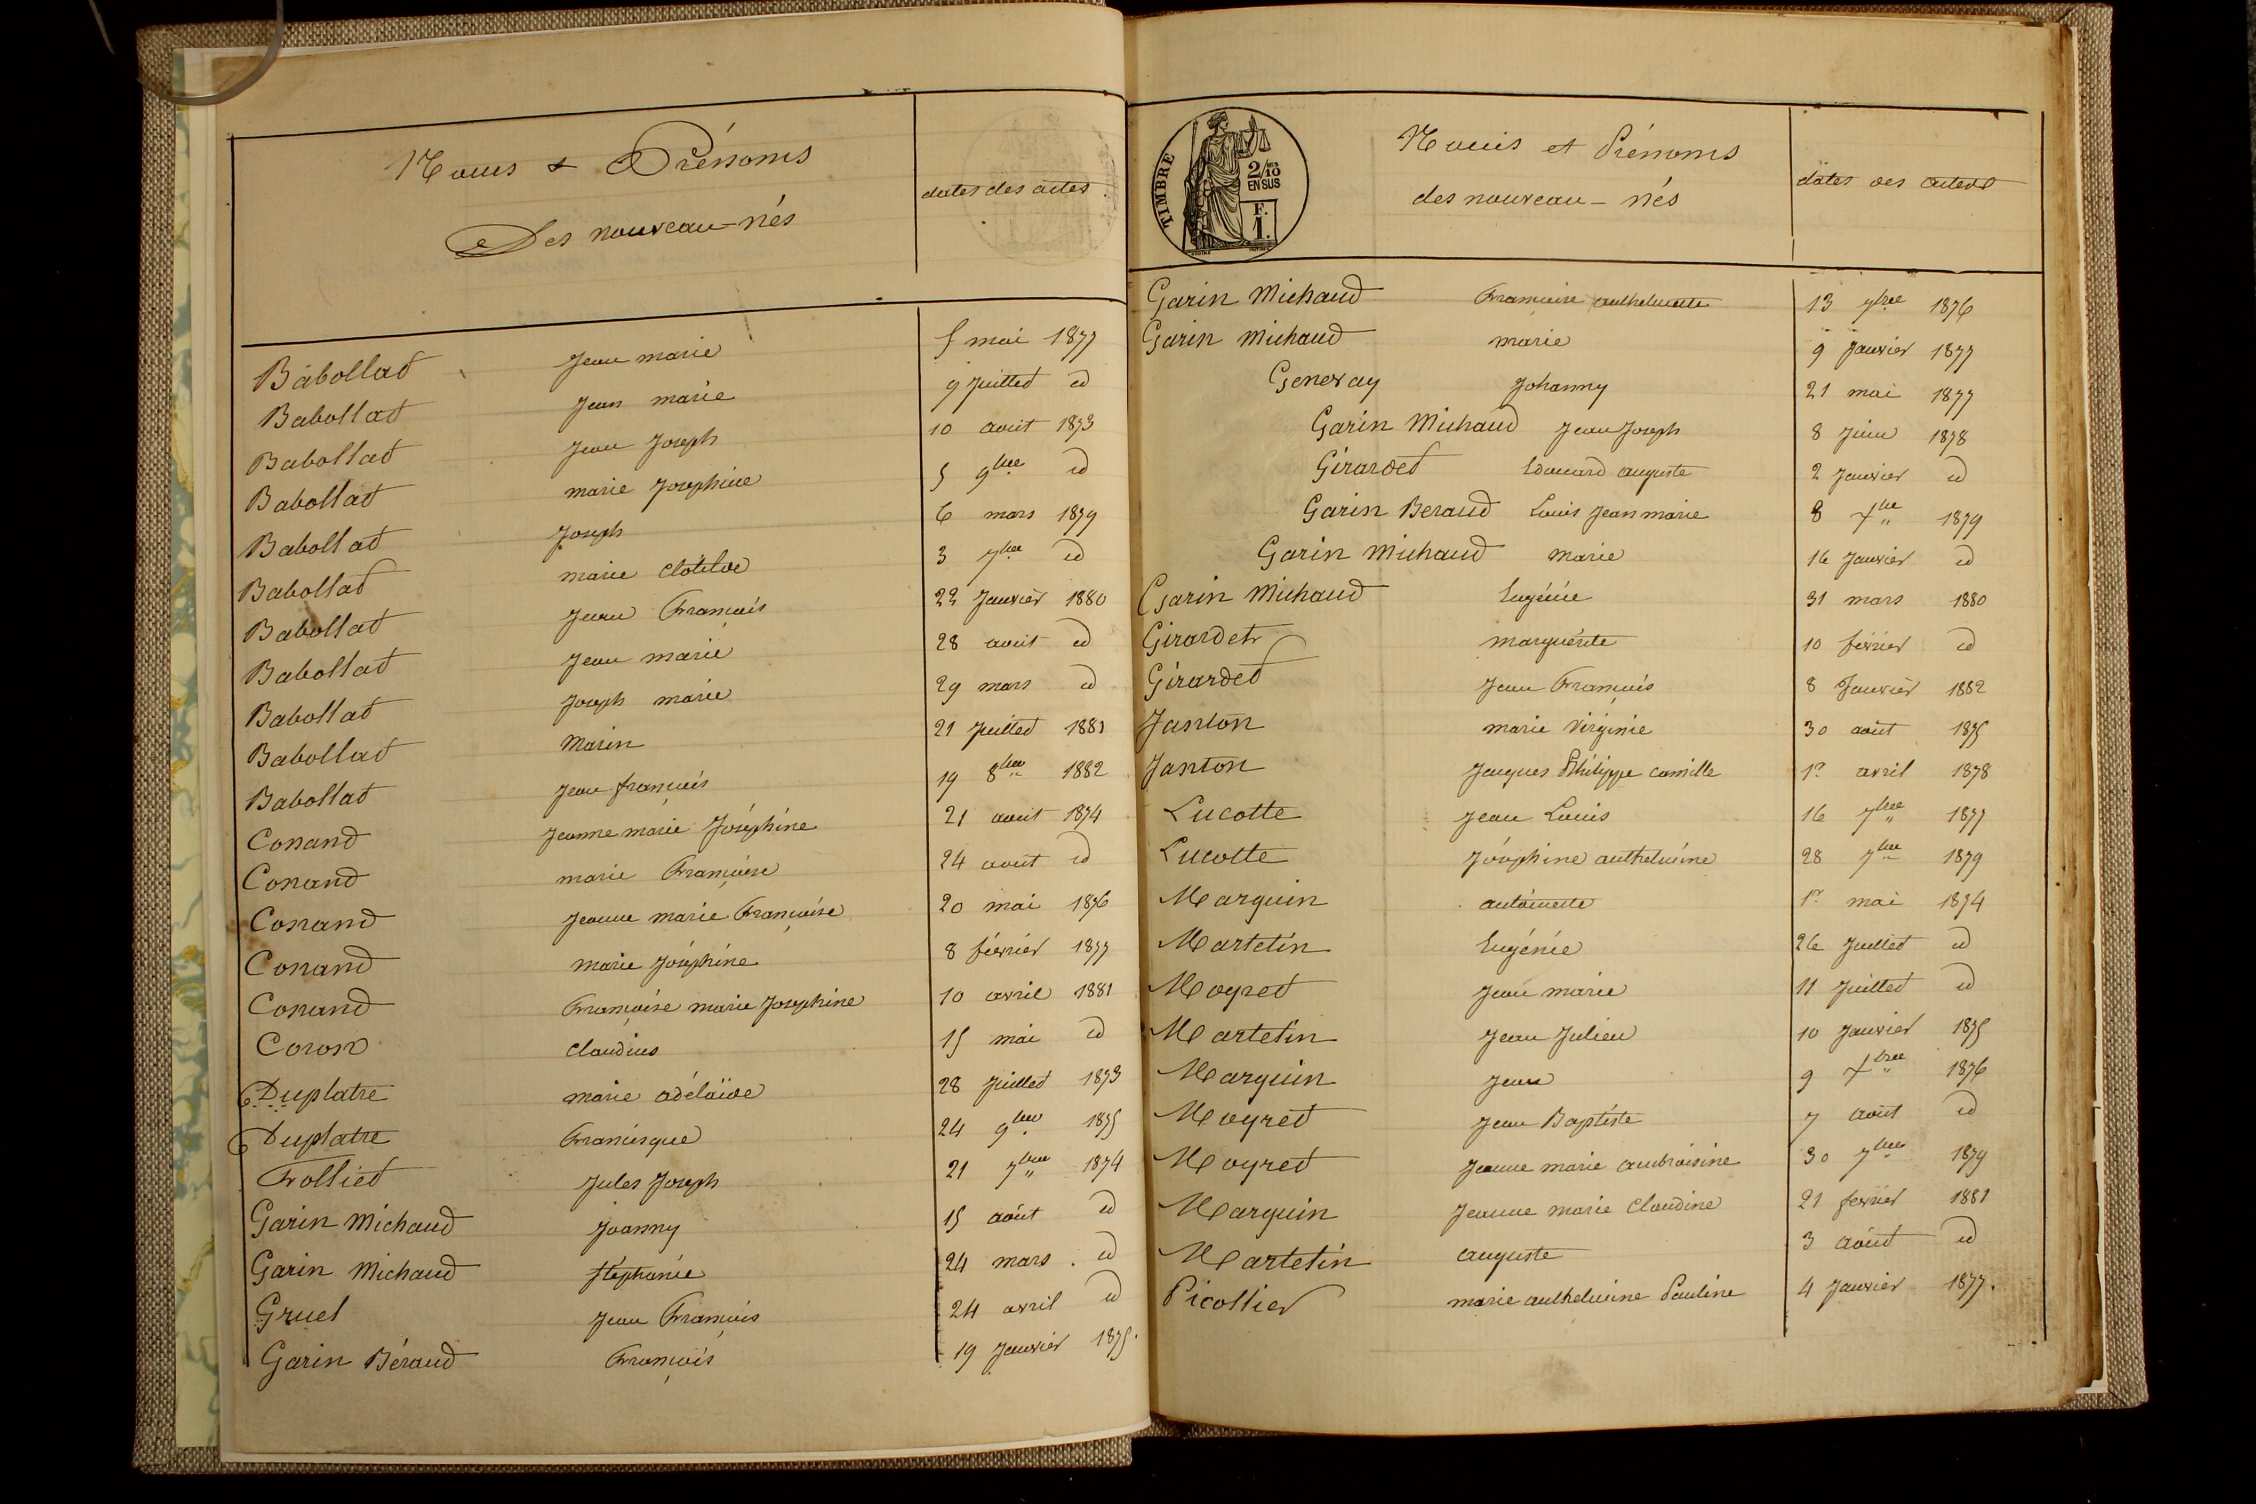 Noms & Prénoms
Des nouveau-nés
dates des actes
Babollat Jean marie 5 mai 1877
Babollat Jean marie 9 Juillet id
Babollat Jean Joseph 10 août 1873
Babollat marie Joséphine 5 9bre id
Babollat Joseph 6 mars 1879
Babollat marie Clotilde 3 7bre id
Babollat Jean François 22 Janvier 1880
Babollat Jean marie 28 août id
Babollat Joseph marie 29 mars id
Babollat Marin 21 Juillet 1881
Babollat Jean françois 19 8bre 1882
Conand Jeanne marie Joséphine 21 août 1874
Conand marie Françoise 24 août id
Conand Jeanne marie Françoise 20 mai 1876
Conand marie Joséphine 8 février 1877
Conand Françoise marie Joséphine 10 avril 1881
Coron Claudius 15 mai id
Duplatre marie adélaïde 28 Juillet 1873
Duplatre Francisque 24 9bre 1875
Folliet Jules Joseph 21 7bre 1874
Garin Michaud Joanny 15 août id
Garin Michaud Stéphanie 24 mars id
Gruel Jean François 24 avril id
Garin Béraud François 19 Janvier 1875.
TIMBRE
2/10 EN SUS
F. 1.
Noms et Prénoms
des nouveau-nés
dates des actes
Garin Michaud Françoise anthelmette 13 7bre 1876
Garin Michaud marie 9 Janvier 1877
Genevay Johanny 21 mai 1877
Garin Michaud Jean Joseph 8 Juin 1878
Girardet Edouard auguste 2 Janvier id
Garin Beraud Louis Jean marie 8 Xbre 1879
Garin Michaud marie 16 Janvier id
Garin Michaud Eugénie 31 mars 1880
Girardet marguérite 10 février id
Girardet Jean François 8 Janvier 1882
Janton marie Virginie 30 août 1875
Janton Jacques Philippe Camille 1er avril 1878
Lucotte Jean Louis 16 7bre 1877
Lucotte Joséphine anthelmine 28 7bre 1879
Marguin antoinette 1r mai 1874
Martelin Eugénie 26 Juillet id
Moyret Jean marie 11 Juillet id
Martelin Jean Julien 10 Janvier 1875
Marguin Jean 9 Xbre 1876
Moyret Jean Baptiste 7 août id
Moyret Jeanne marie ambroisine 30 7bre 1879
Marguin Jeanne marie Claudine 21 fevrier 1881
Martelin auguste 3 août id
Picollier marie anthelmine Pauline 4 Janvier 1877.